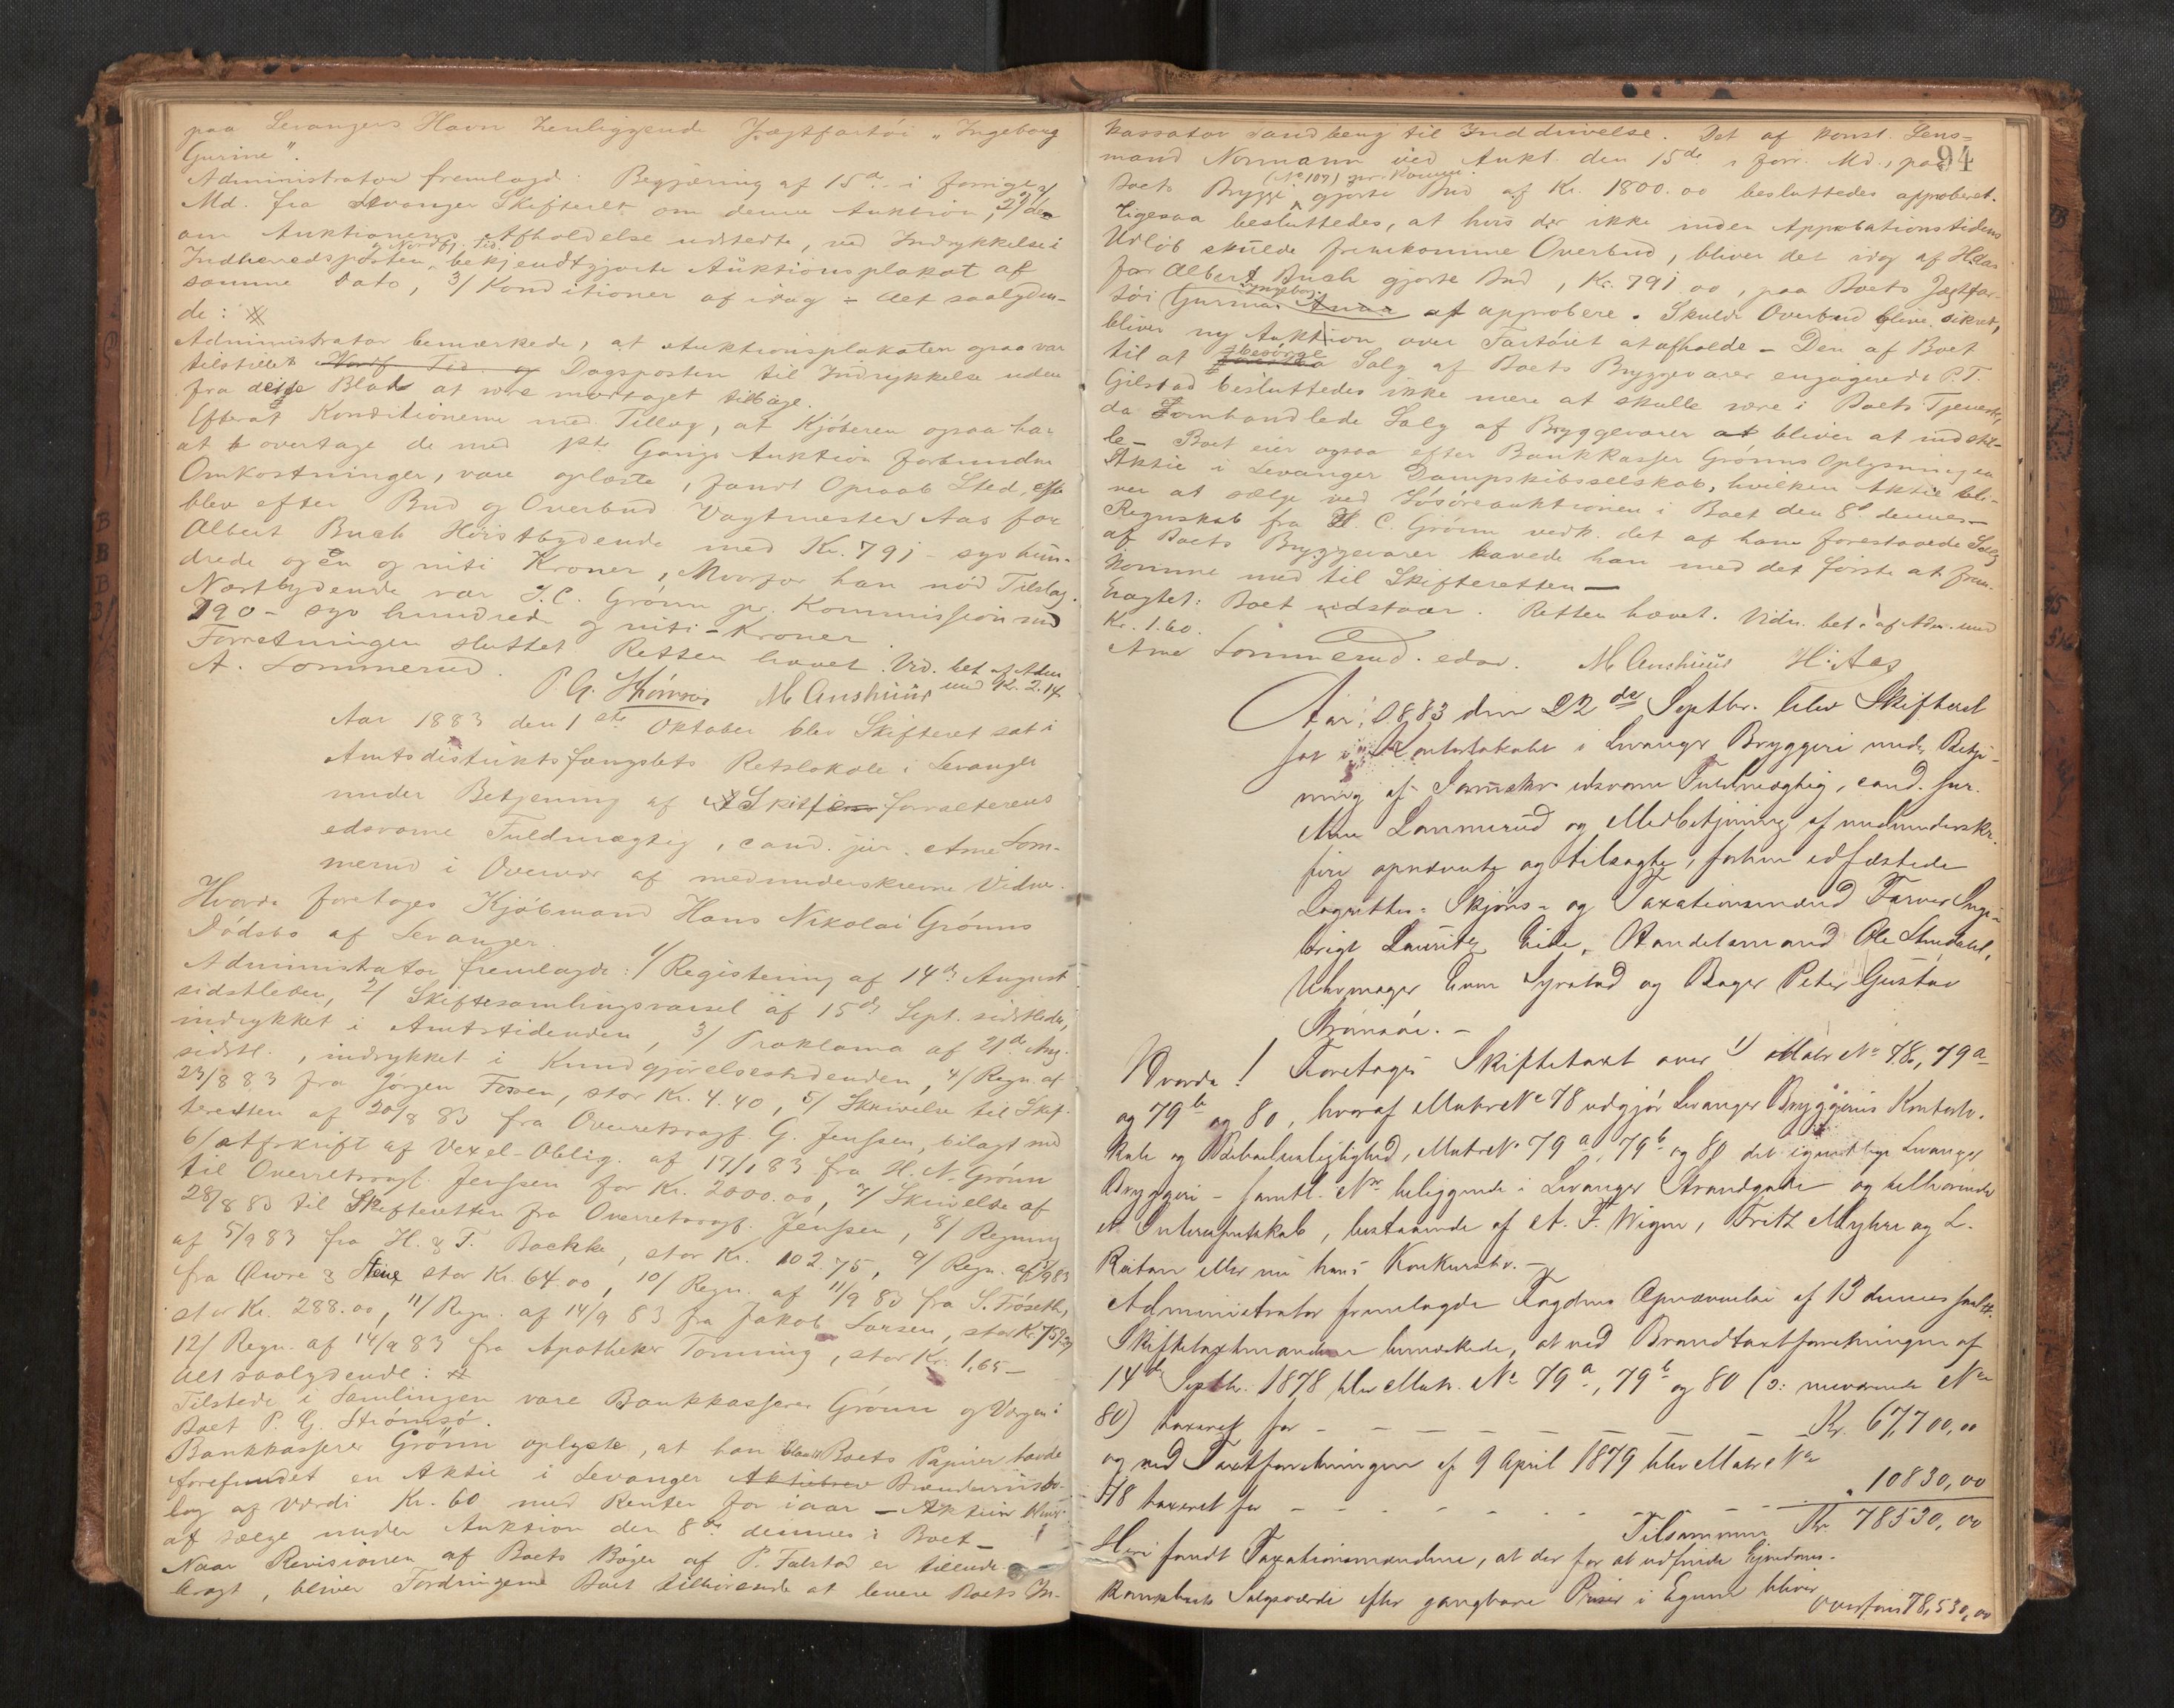 paa Levangers Havn henliggende Jægtfartöi „Ingeborg
Gurine”.
Administrator fremlagde: Begjæring af 15de i forrige
Md. fra Levanger Skifteret om denne Auktion, 2/ den
om Auktionens Afholdelse udstedte, ved Indrykkelse i
og Nordfj. Tid.
Indherredsposten bekjendtgjorte Auktionsplakat af
samme Dato, 3/ Konditioner af idag – det saalyden-
de:
Administrator bemærkede, at Auktionsplakaten ogsaa var
tilstillet Nordf. Tid. og Dagsposten til Indrykkelse uden
fra dette Blad at være modtaget tilbage.
Efterat Konditionerne med Tillæg, at Kjöberen ogsaa har
at overtage de med 1ste Gangs Auktion forbundne
Omkostninger, vare oplæste, fandt Opraab Sted, og
blev efter Bud og Overbud Vagtmester Aas for
Albert Buch Höistbydende med Kr. 791 – syv hun-
drede og en og niti Kroner, hvorfor han nöd Tilslag.
Næstbydende var J. C. Grönn pr. Kommission med
790 – syv hundrede og niti – Kroner
Forretningen sluttet. Retten hævet. Vid. bet. af Adm.
med Kr. 2.14.
A. Sommerud. P. G. Strömsö M Anshuus
Aar 1883 den 1ste Oktober blev Skifteret sat i
Amtsdistriktsfængslets Retslokale i Levanger
under Betjening af Skifteforvalterens
edsvorne Fuldmægtig, cand. jur. Arne Som-
merud i Overvær af medunderskrevne Vidner.
Hvorda foretoges Kjöbmand Hans Nikolai Grönns
Dödsbo af Levanger.
Administrator fremlagde: 1/ Registering af 14de August
sidstleden, 2/ Skiftesamlingsvarsel af 15de Sept. sidstleden,
indrykket i Amtstidenden, 3/ Proklama af 21de Aug.
sidstl., indrykket i Kundgjörelsestidenden, 4/ Regn. af
23/8 83 fra Jörgen Fossen, stor Kr. 4.40, 5/ Skrivelse til Skif-
teretten af 20/8 83 fra Overretssagf. G. Jenssen, bilagt med
6/ Afskrift af Vexel-Oblig. af 17/1 83 fra H. N. Grönn
til Overretssagf. Jenssen for Kr. 2000.00, 7/ Skrivelse af
28/8 83 til Skifteretten fra Overretssagf. Jenssen, 8/ Regning
af 5/9 83 fra H. & F. Backke, stor Kr. 102.75, 9/ Regn. af 5/9 83
fra Øwre & Stene stor Kr. 64.00, 10/ Regn. af 11/9 83 fra S. Fröseth,
stor Kr. 288.00, 11/ Regn. af 14/9 83 fra Jakob Larsen, stor Kr.
12/ Regn. af 14/9 83 fra Apotheker Tonning, stor Kr. 1,65 –
det saalydende:
Tilstede i Samlingen vare Bankkasserer Grönn og Værgen i
Boet P. G. Strömsö.
Bankkasserer Grönn oplyste, at han blandt Boets Papirer havde
forefundet en Aktie i Levanger Aktiebrev Brænderiibo-
lag af Værdi Kr. 60 med Renter for iaar – Aktien bliver
at sælge under Auktion den 8de dennes i Boet –
Naar Revisionen af Boets Böger af P. Falstad er tilende-
bragt, bliver Fordringerne Boet tilhörende at levere Boets In-
94
kassator Sandberg til Inddrivelse. Det af konst. Lens-
mand Normann ved Aukt. den 15de i forr. Md., paa
(No 107) pr. Komm.
Boets Brygge gjorte Bud af Kr. 1800.00 besluttedes approberet.
Ligesaa besluttedes, at hvis der ikke inden Approbationstidens
Udlöb skulde fremkomme Overbud, bliver det idag af H. Aas
for Albert Buch gjorte Bud, Kr. 791.00, paa Boets Jægtfar-
Ingeborg
töi Gurina Anna at approbere. Skulde Overbud blive sikret,
bliver ny Auktion over Fartöiet at afholde – Den af Boet
besörge
til at Salg af Boets Bryggevarer engagerede P. T.
Gilstad besluttedes ikke mere at skulle være i Boets Tjeneste,
da Forhandlede Salg af Bryggevarer at bliver at indstil-
le – Boet eier ogsaa efter Bankkasser Grönns Oplysning en
Aktie i Levanger Dampskibsselskab, hvilken Aktie bli-
ver at sælge ved Lösöreauktionen i Boet den 8de dennes –
Regnskab fra H. C. Grönn vedk. det af ham forestaaede Salg
af Boets Bryggevarer havde han med det förste at frem-
komme med til Skifteretten –
Eragtet: Boet udstaar. Retten hævet. Vidn. bet. af Adm. med
Kr. 1.60.
Arne Sommerud. edsv. M Anshuus H. Aas
Aar 1883 den 22de Septbr. blev Skifteret
sat i Kontorlokalet i Levanger Bryggeri under Betje-
ning af Sorenskr. edsvorne Fuldmægtig, cand. jur.
Arne Sommerud og Medbetjening af medunderskr.
fire opnævnte og tilsagte, forhen edfæstede
Lagrettes- Skjöns- og Taxationsmænd Farver Inge-
brigt Lauritz Eide, Handelsmand Ole Stuedahl,
Uhrmager Even Syrstad og Bager Peter Gustav
Strömsöe. –
Hvorda! Foretoges Skiftetaxt over 1) Matr No 78, 79a
og 79b og 80, hvoraf Matr No 78 udgjör Levanger Bryggeris Kontorlo-
kale og Beboelsesleilighed, Matr No 79a, 79b og 80 det egentlige Levanger
Bryggeri – samtl. No beliggende i Levanger Strandgade og tilhörende
et Interessentskab, bestaaende af A. F. Wigen, Fritz Myhre og L.
Raitan eller nu hans Konkursbo. –
Administrator fremlagde Fogdens Opnævnelse af 13 dennes
Skiftetaxtmændene bemærkede, at ved Brandtaxtforretningen af
14de Septbr. 1878 blev Matr. No 79a, 79b og 80 (o: nuværende No
80) taxeret for – – – – – – – Kr. 67,700,00
og ved Taxtforretningen af 9 April 1879 blev Matr No
78 taxeret for – – – – – – – „ 10830,00
Tilsammen Kr 78530,00
Heri fandt Taxationsmændene, at der for at udfinde Eiendom-
kompleets Salgsværdi efter gangbare Priser i Egnen bliver
overföres 78,530,00